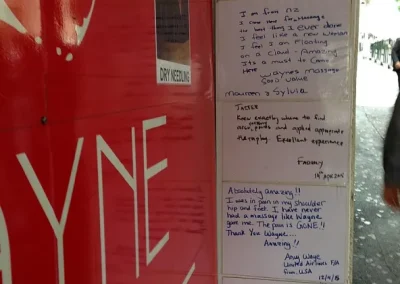 DRY NEEDLING
WAYNE
I am from NZ
I came here for massage
the best thing I ever done
I feel like a new woman
I feel I am floating
on a cloud - Amazing
Its a must to come
Here Waynes massage
Good value
Maureen & Sylvia
Knew exactly where to find
points and applied appropriate
therapy. Excellent experience
Absolutely amazing!!
I was in pain in my shoulder
hip and feet. I have never
had a massage like Wayne
gave me. The pain is GONE!!
Thank You Wayne...
Amazing!!
Andy Waye
United Airlines F/A
from USA